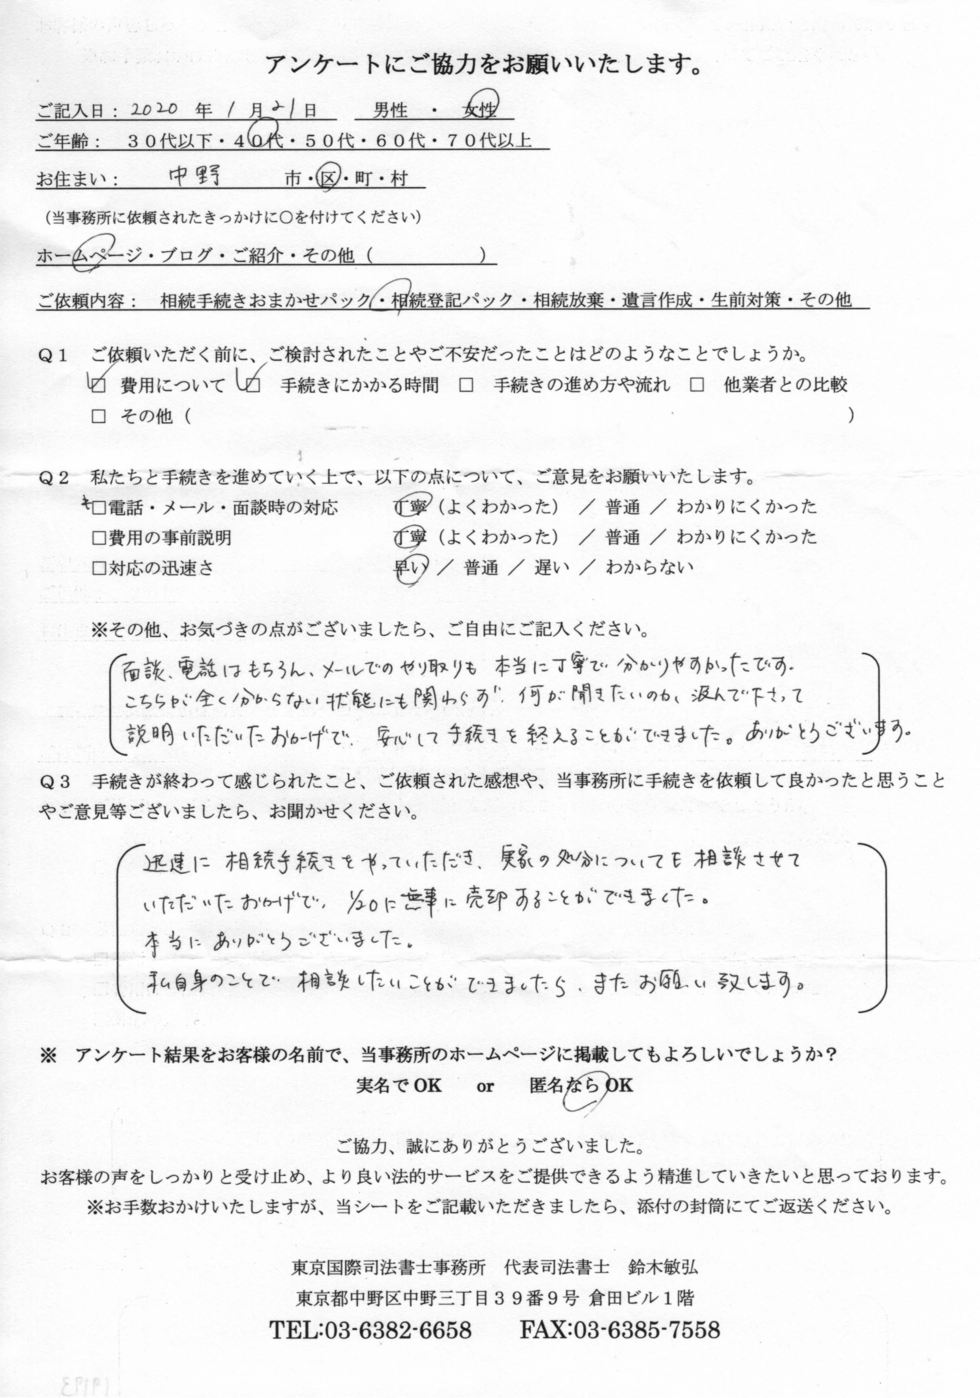 アンケートにご協力をお願いいたします。
ご記入日： 2020 年 1 月 21 日　男性 ・ 女性
ご年齢： 30代以下・40代・50代・60代・70代以上
お住まい： 中野 市・区・町・村
（当事務所に依頼されたきっかけに〇を付けてください）
ホームページ・ブログ・ご紹介・その他（　　　　　　）
ご依頼内容： 相続手続きおまかせパック・相続登記パック・相続放棄・遺言作成・生前対策・その他
Q1　ご依頼いただく前に、ご検討されたことやご不安だったことはどのようなことでしょうか。
☑ 費用について ☑ 手続きにかかる時間 □ 手続きの進め方や流れ □ 他業者との比較
□ その他（　　　　　　）
Q2　私たちと手続きを進めていく上で、以下の点について、ご意見をお願いいたします。
□電話・メール・面談時の対応　丁寧（よくわかった） ／ 普通 ／ わかりにくかった
□費用の事前説明　丁寧（よくわかった） ／ 普通 ／ わかりにくかった
□対応の迅速さ　早い ／ 普通 ／ 遅い ／ わからない
※その他、お気づきの点がございましたら、ご自由にご記入ください。
面談、電話はもちろん、メールでのやり取りも 本当に丁寧で 分かりやすかったです。
こちらが全く分からない状態にも関わらず、何が聞きたいのか、汲んで下さって
説明いただいたおかげで、安心して手続きを終えることができました。ありがとうございます。
Q3　手続きが終わって感じられたこと、ご依頼された感想や、当事務所に手続きを依頼して良かったと思うこと
やご意見等ございましたら、お聞かせください。
迅速に 相続手続きをやっていただき、実家の処分についても相談させて
いただいたおかげで、1/20に無事に売却することができました。
本当にありがとうございました。
私自身のことで 相談したいことができましたら、またお願い致します。
※　アンケート結果をお客様の名前で、当事務所のホームページに掲載してもよろしいでしょうか？
実名でOK　or　匿名ならOK
ご協力、誠にありがとうございました。
お客様の声をしっかりと受け止め、より良い法的サービスをご提供できるよう精進していきたいと思っております。
※お手数おかけいたしますが、当シートをご記載いただきましたら、添付の封筒にてご返送ください。
東京国際司法書士事務所　代表司法書士　鈴木敏弘
東京都中野区中野三丁目39番9号 倉田ビル1階
TEL:03-6382-6658　FAX:03-6385-7558